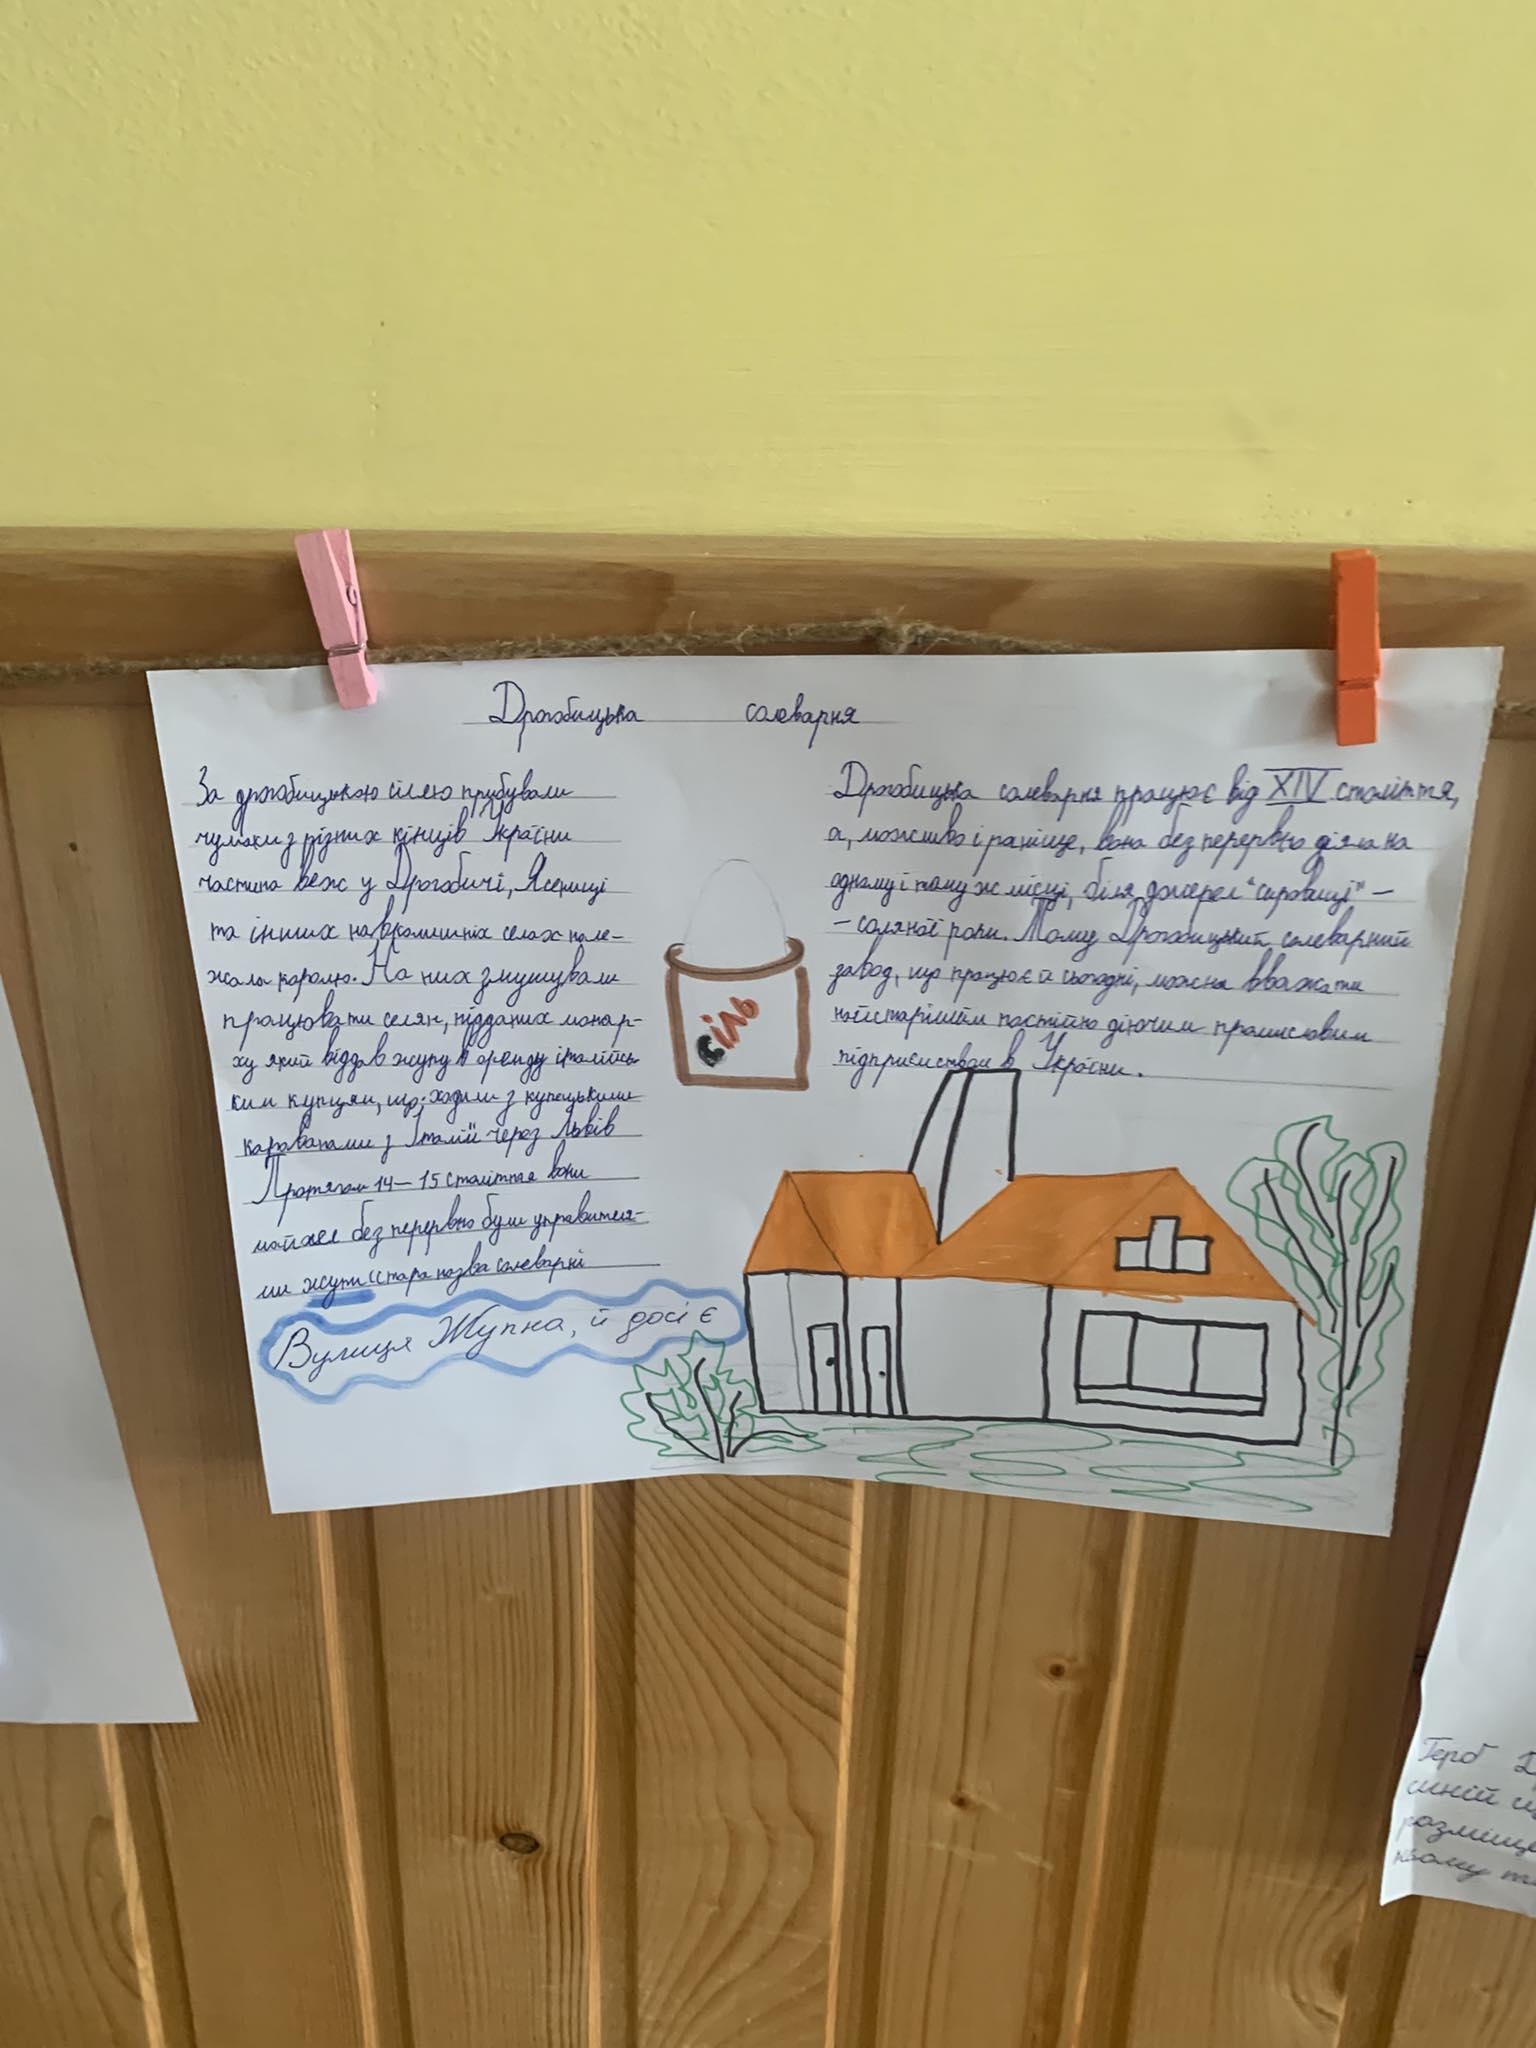 Дрогобицька солеварня
За дрогобицькою сіллю прибували
чумаки з різних кінців України
частина веж у Дрогобичі, Ясениці
та інших навколишніх селах нале-
жала королю. На них змушували
працювати селян, підданих монар-
ху який віддав жупу в оренду італійсь
ким купцям, що ходили з купецькими
караванами з Італії через Львів
Протягом 14-15 століття вони
майже без перервно були управителя-
ми жупи (стара назва солеварні
Вулиця Жупна, й досі є
сіль
Дрогобицька солеварня працює від XIV століття,
а, можливо і раніше, вона без перервно діяла на
одному і тому ж місці, біля джерел "сировиці" –
– соляної ропи. Тому Дрогобицький солеварний
завод, що працює й сьогодні, можна вважати
найстарішим постійно діючим промисловим
підприємством в Україні.
Герб
синій
розміще
ньому